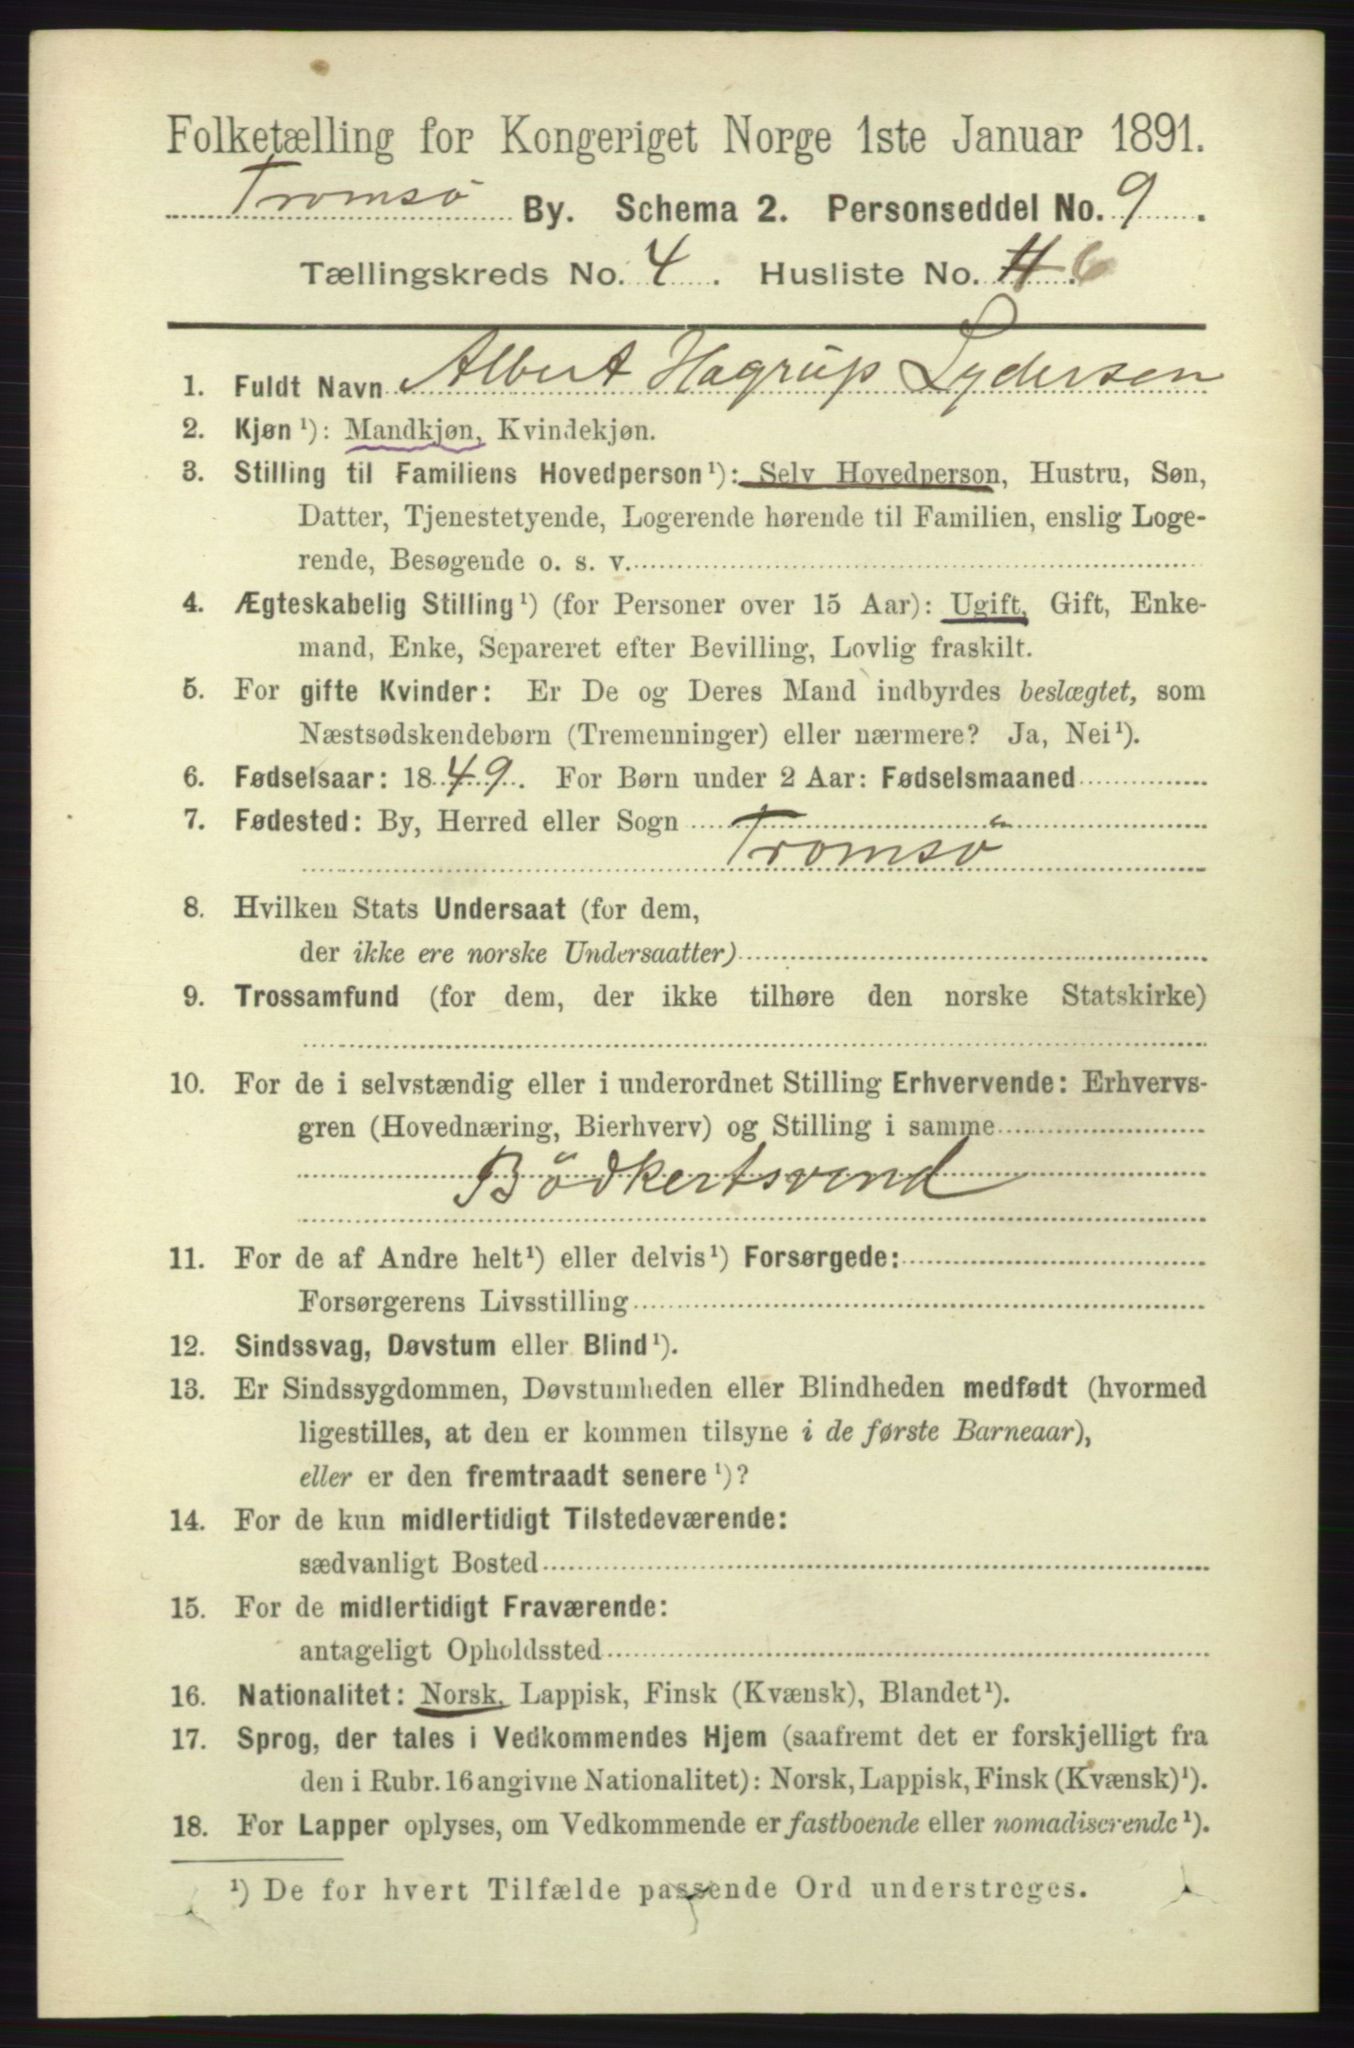 Folketælling for Kongeriget Norge 1ste Januar 1891.
Tromsö By. Schema 2. Personseddel No. 9.
Tællingskreds No. 4. Husliste No. 6
1. Fuldt Navn Albert Hagrup Lydersen
2. Kjøn ¹): Mandkjøn, Kvindekjøn.
3. Stilling til Familiens Hovedperson ¹): Selv Hovedperson, Hustru, Søn,
Datter, Tjenestetyende, Logerende hørende til Familien, enslig Loge-
rende, Besøgende o. s. v.
4. Ægteskabelig Stilling ¹) (for Personer over 15 Aar): Ugift, Gift, Enke-
mand, Enke, Separeret efter Bevilling, Lovlig fraskilt.
5. For gifte Kvinder: Er De og Deres Mand indbyrdes beslægtet, som
Næstsødskendebørn (Tremenninger) eller nærmere? Ja, Nei ¹).
6. Fødselsaar: 1849. For Børn under 2 Aar: Fødselsmaaned
7. Fødested: By, Herred eller Sogn
Tromsö
8. Hvilken Stats Undersaat (for dem,
der ikke ere norske Undersaatter)
9. Trossamfund (for dem, der ikke tilhøre den norske Statskirke)
10. For de i selvstændig eller i underordnet Stilling Erhvervende: Erhvervs-
gren (Hovednæring, Bierhverv) og Stilling i samme
Bödkertsvend
11. For de af Andre helt ¹) eller delvis ¹) Forsørgede:
Forsørgerens Livsstilling
12. Sindssvag, Døvstum eller Blind ¹).
13. Er Sindssygdommen, Døvstumheden eller Blindheden medfødt (hvormed
ligestilles, at den er kommen tilsyne i de første Barneaar),
eller er den fremtraadt senere ¹)?
14. For de kun midlertidigt Tilstedeværende:
sædvanligt Bosted
15. For de midlertidigt Fraværende:
antageligt Opholdssted
16. Nationalitet: Norsk, Lappisk, Finsk (Kvænsk), Blandet ¹).
17. Sprog, der tales i Vedkommendes Hjem (saafremt det er forskjelligt fra
den i Rubr. 16 angivne Nationalitet): Norsk, Lappisk, Finsk (Kvænsk) ¹).
18. For Lapper oplyses, om Vedkommende er fastboende eller nomadiserende ¹).
¹) De for hvert Tilfælde passende Ord understreges.